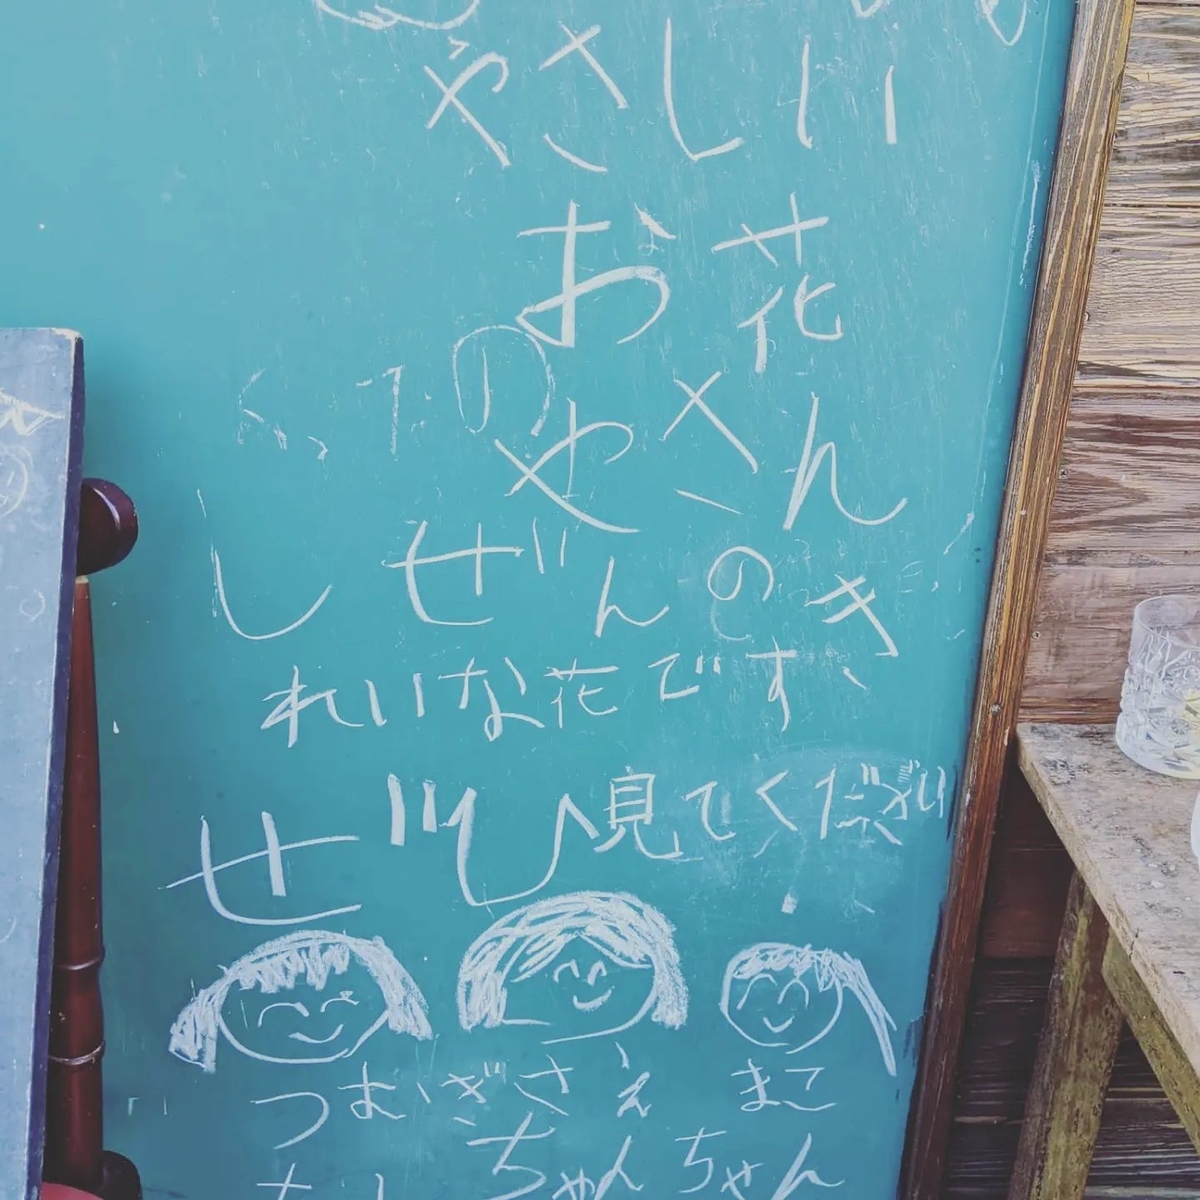 やさしい
お花
やさん
しぜんのき
れいな花です、
ぜひ見てください
つむぎ さえ まこ
ちゃん ちゃん